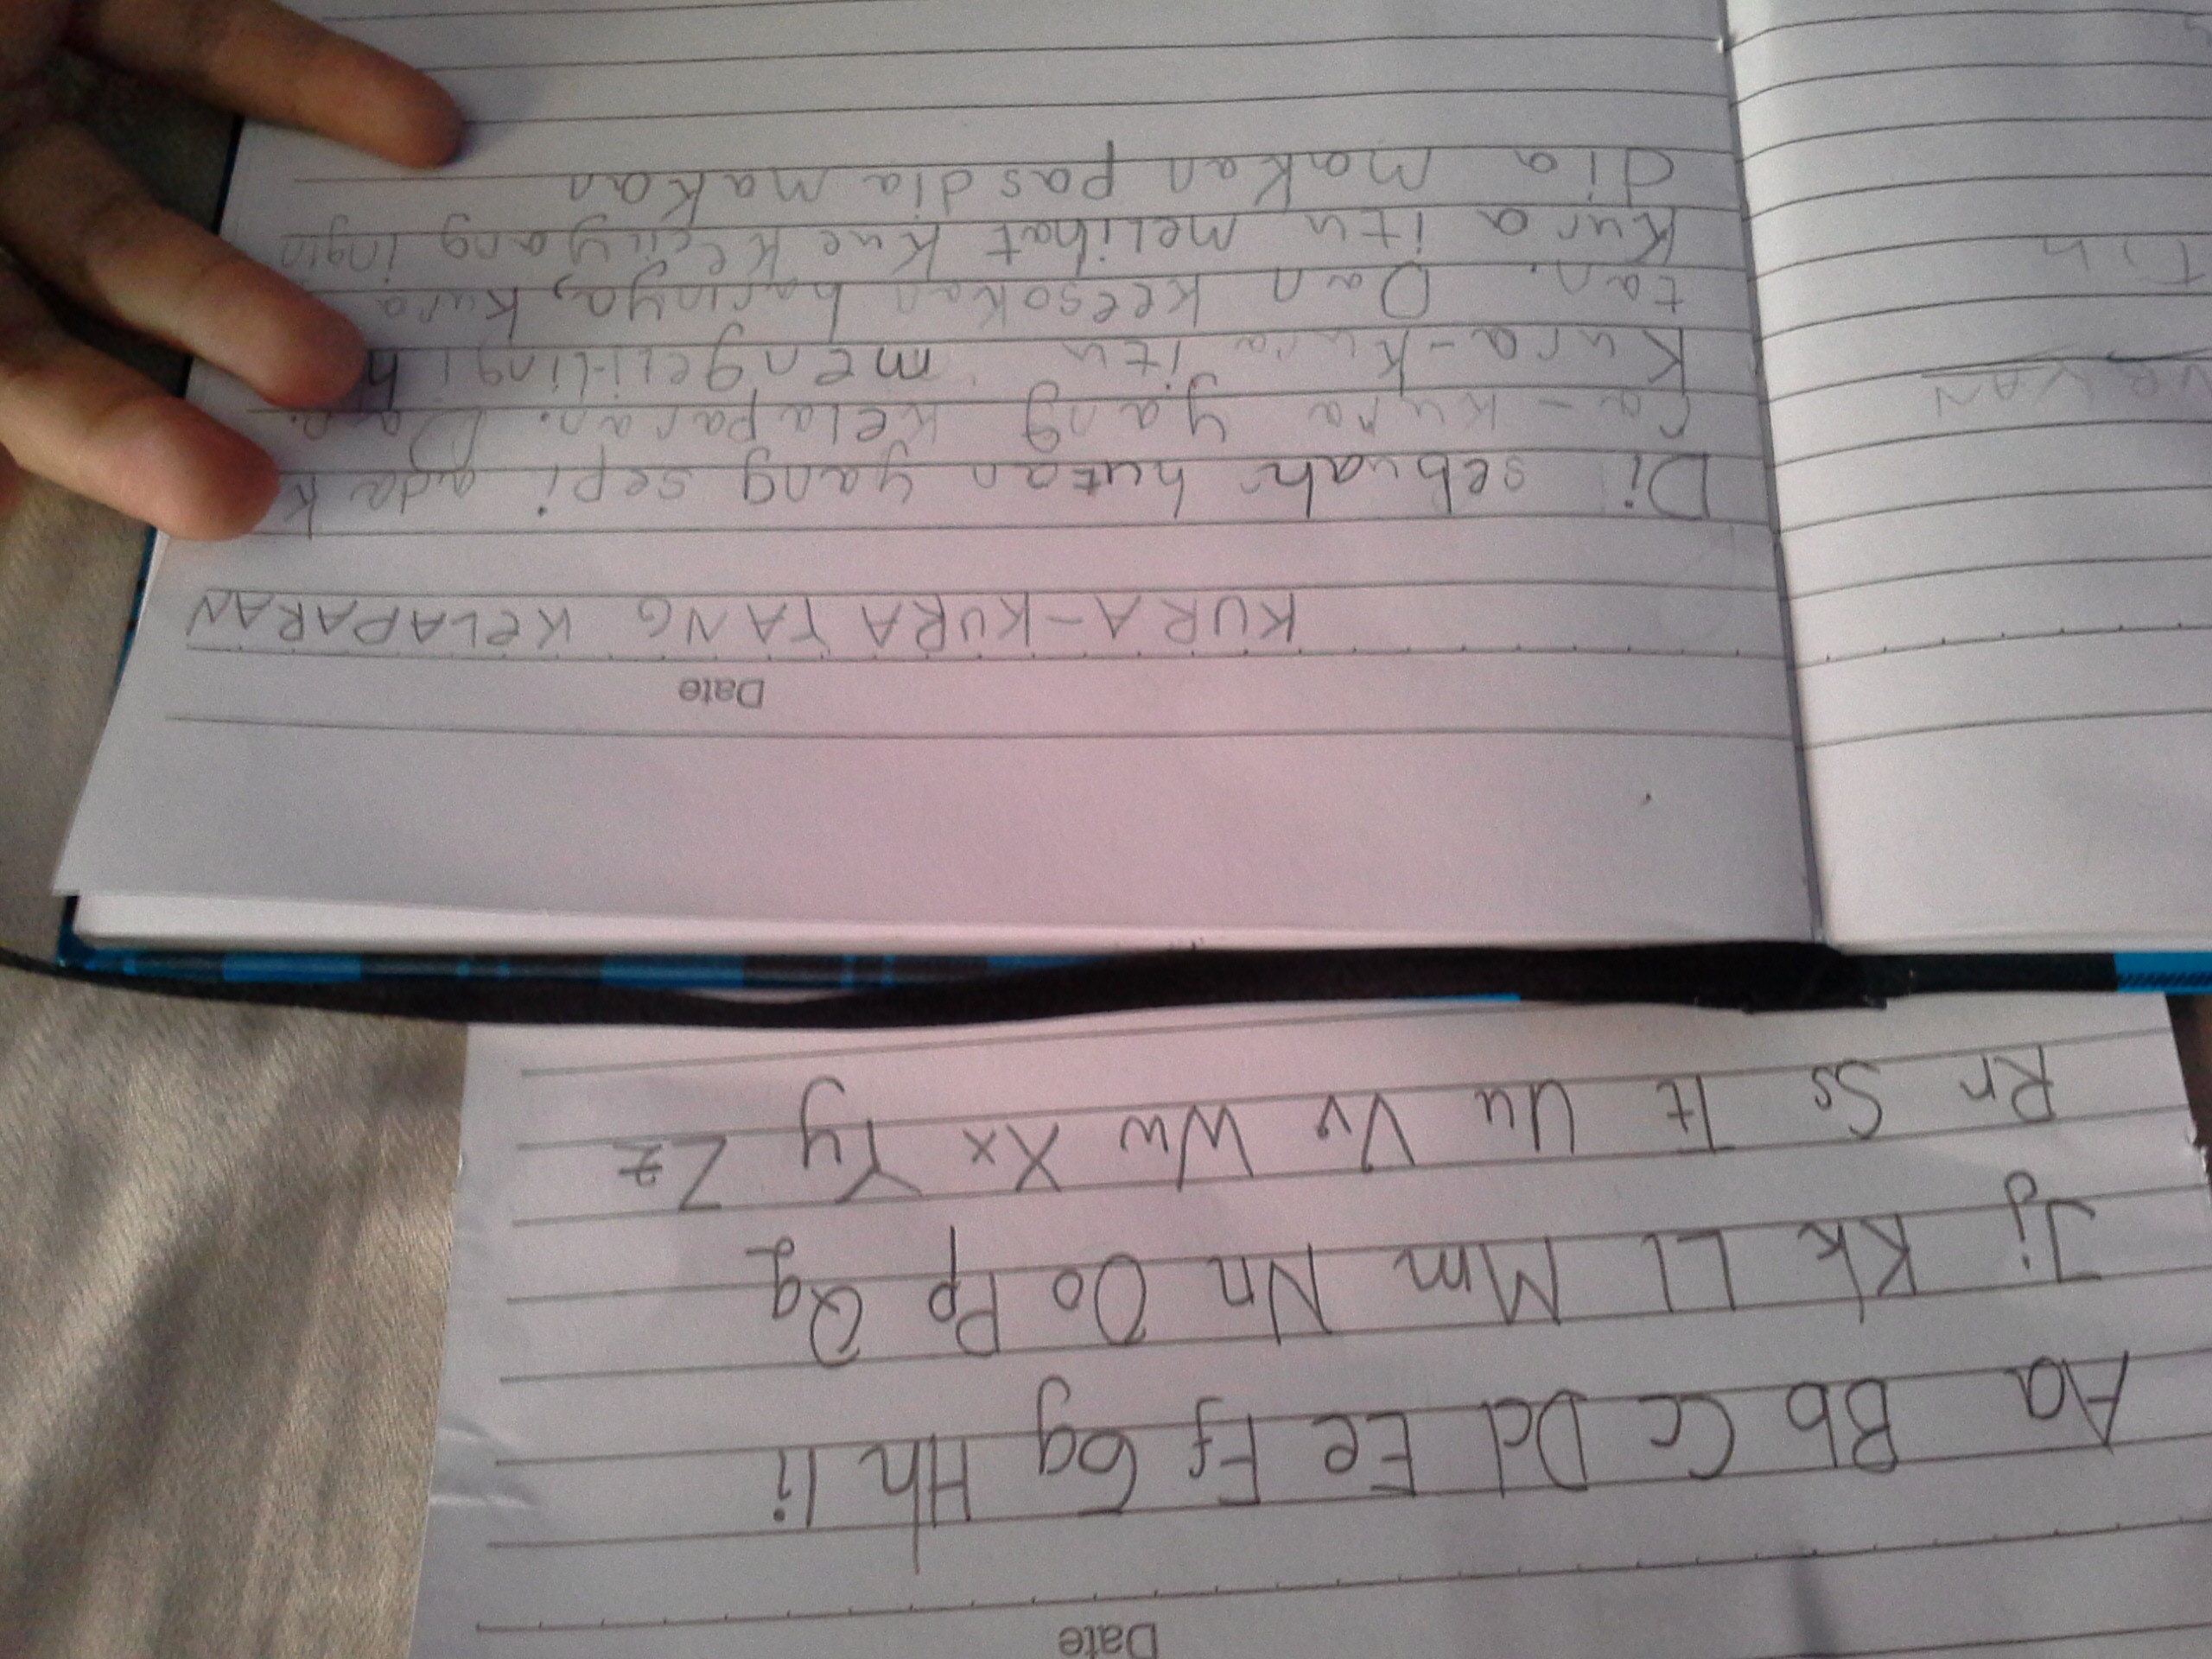 Date
Aa Bb Cc Dd Ee Ff Gg Hh Ii
Jj Kk Ll Mm Nn Oo Pp Qq
Rr Ss Tt Uu Vv Ww Xx Yy Zz
Date
KURA-KURA YANG KELAPARAN
Di sebuah hutan yang sepi ada k
ra-kura yang kelaparan. Dan.
Kura-kura itu mengelilingi h
tan. Dan keesokan harinya, kura
kura itu melihat kue kecil yang ingin
dia makan pas dia makan